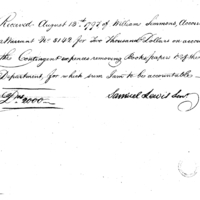 Received August 13th 1797 of William Simmons, Accoun
a Warrant No 3142 for Two Thousand Dollars on accou
the Contingent expenses removing Books papers &c of th
Department, for which sum I am to be accountable
Drs 2000
Samuel Lewis Senr